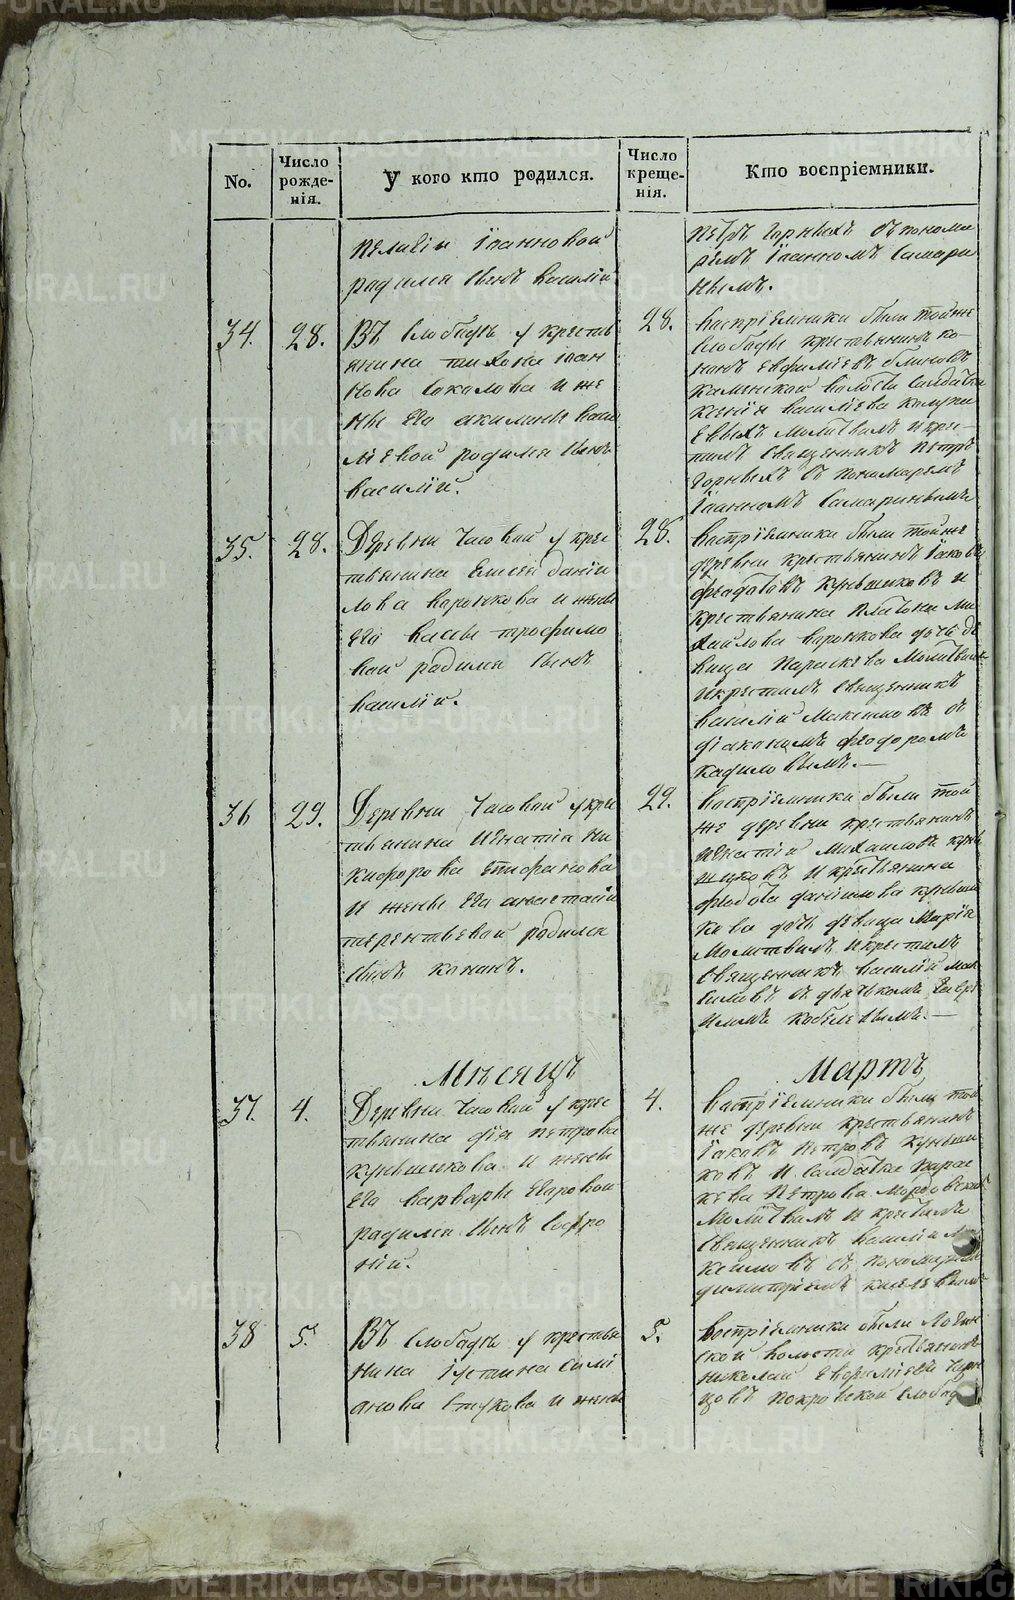 No.
Число рожденія.
У кого кто родился.
Число крещенія.
Кто воспріемники.
пелагіи Іоанновой
родился сынъ василій
петръ горныхъ съ понома
ремъ Іоанномъ Самари
нымъ.
34.
28.
Въ слободѣ у кресть
янина тихона іоан
нова соколова и же
ны его акилины васи
ліевой родился сынъ
василій.
28.
воспріемники были тойже
слободы крестьянинъ ко
нонъ евфиміевъ
каменской волости солдатка
ксенія васильева
молитвилъ и кре
стилъ священникъ петръ
горныхъ съ пономаремъ
Іоанномъ Самаринымъ
35.
28.
Деревни Часовой у крес
тьянина елисея даніи
лова воронкова и жены
его вассы трофимо
вой родился сынъ
василій.
28.
воспріемники были тойже
деревни крестьянинъ Іаковъ
феодотовъ куньщиковъ и
крестьянина платона ми
хайлова воронкова дочь дѣ
вица параскева молитвилъ
и крестилъ священникъ
василій максимовъ съ
діакономъ феодоромъ
кадиловымъ.
36
29.
Деревни Часовой у крес
тьянина игнатія ни
кифорова епифанова
и жены его анастасіи
терентьевой родился
сынъ кононъ.
29.
воспріемники были той
же деревни крестьянинъ
игнатій михайловъ кунь
щиковъ и крестьянина
федота данилова куньщи
кова дочь девица марія
молитвилъ и крестилъ
священникъ василій мак
симовъ съ дьячкомъ гаврі
иломъ кобелевымъ.
Мѣсяцъ
Мартъ
37.
4.
Деревни Часовой у крес
тьянина петрова
куньщикова и жены
его варвары егоровой
родился сынъ софро
ній.
4.
воспріемники были той
же деревни крестьянинъ
Іаковъ петровъ куньщи
ковъ и солдатка парас
кева петрова
молитвилъ и крестилъ
священникъ василій ма
ксимовъ съ пономаремъ
димитріемъ киселевымъ
38
5.
Въ слободѣ у крестья
нина іустина симі
анова и жены
5.
воспріемники были
ской волости крестьянинъ
николай евфиміевъ
цовъ покровской слободы